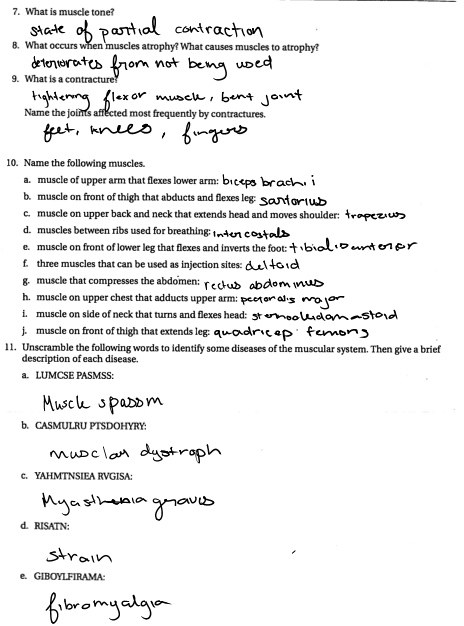 7. What is muscle tone?
state of partial contraction
8. What occurs when muscles atrophy? What causes muscles to atrophy?
deteriorates from not being used
9. What is a contracture?
tightening flexor muscle, bent joint
Name the joints affected most frequently by contractures.
feet, knees, fingers
10. Name the following muscles.
a. muscle of upper arm that flexes lower arm: biceps brachii
b. muscle on front of thigh that abducts and flexes leg: sartorius
c. muscle on upper back and neck that extends head and moves shoulder: trapezius
d. muscles between ribs used for breathing: intercostals
e. muscle on front of lower leg that flexes and inverts the foot: tibialis anterior
f. three muscles that can be used as injection sites: deltoid
g. muscle that compresses the abdomen: rectus abdominus
h. muscle on upper chest that adducts upper arm: pectoralis major
i. muscle on side of neck that turns and flexes head: sternocleidomastoid
j. muscle on front of thigh that extends leg: quadricep femoris
11. Unscramble the following words to identify some diseases of the muscular system. Then give a brief
description of each disease.
a. LUMCSE PASMSS:
Muscle spasom
b. CASMULRU PTSDOHYRY:
musclar dystroph
c. YAHMTNSIEA RVGISA:
Myasthenia graves
d. RISATN:
strain
e. GIBOYLFIRAMA:
fibromyalgia